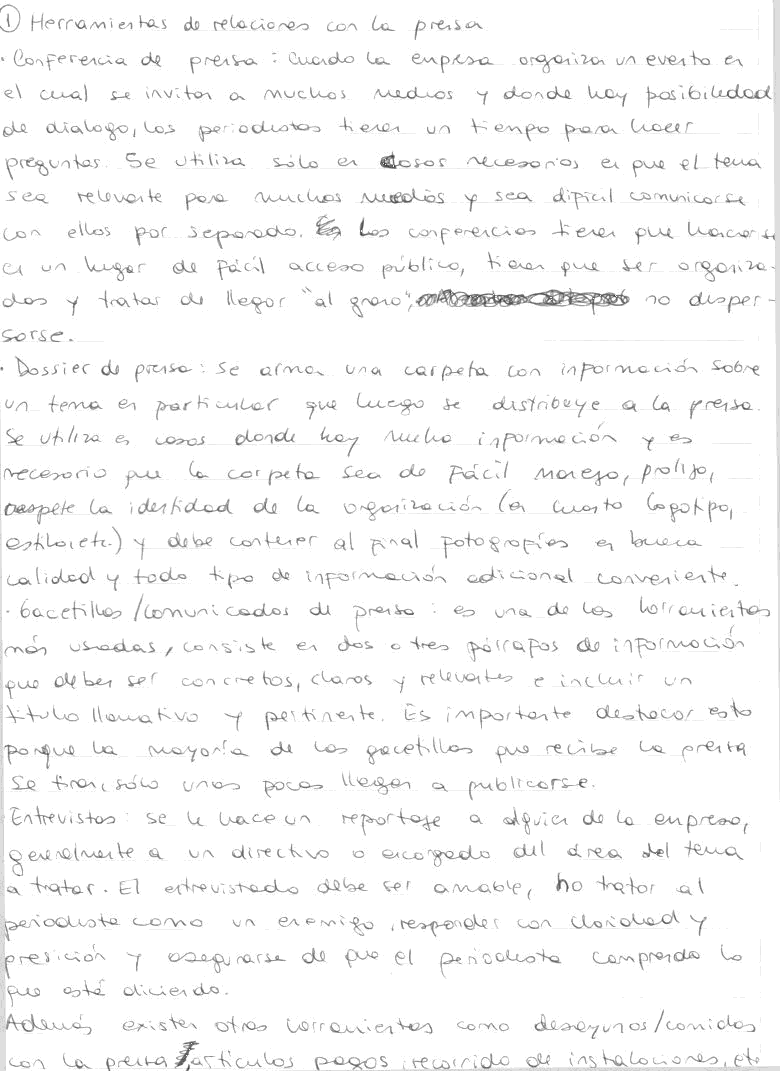 ① Herramientas de relaciones con la prensa
· Conferencia de prensa: Cuando la empresa organiza un evento en
el cual se invitan a muchos medios y donde hay posibilidad
de dialogo, los periodistas tienen un tiempo para hacer
preguntas. Se utiliza sólo en casos necesarios en que el tema
sea relevante para muchos medios y sea dificil comunicarse
con ellos por separado. Las conferencias tienen que hacerse
en un lugar de fácil acceso público, tienen que ser organiza-
das y tratar de llegar "al grano", no disper-
sarse.
· Dossier de prensa: se arma una carpeta con información sobre
un tema en particular que luego se distribuye a la prensa.
Se utiliza en casos donde hay mucha información y es
necesario que la carpeta sea de fácil manejo, prolijo,
respete la identidad de la organización (en cuanto logotipo,
estilo, etc.) y debe contener al final fotografías en buena
calidad y todo tipo de información adicional conveniente.
· Gacetillas/comunicados de prensa: es una de las herramientas
más usadas, consiste en dos o tres párrafos de información
que deben ser concretos, claros y relevantes e incluir un
título llamativo y pertinente. Es importante destacar esto
porque la mayoría de las gacetillas que recibe la prensa
se tiran, sólo unas pocas llegan a publicarse.
Entrevistas: se le hace un reportaje a alguien de la empresa,
generalmente a un directivo o encargado del área del tema
a tratar. El entrevistado debe ser amable, no tratar al
periodista como un enemigo, responder con claridad y
presición y asegurarse de que el periodista comprenda lo
que está diciendo.
Además existen otras herramientas como desayunos/comidas
con la prensa, artículos pagos, recorrido de instalaciones, etc